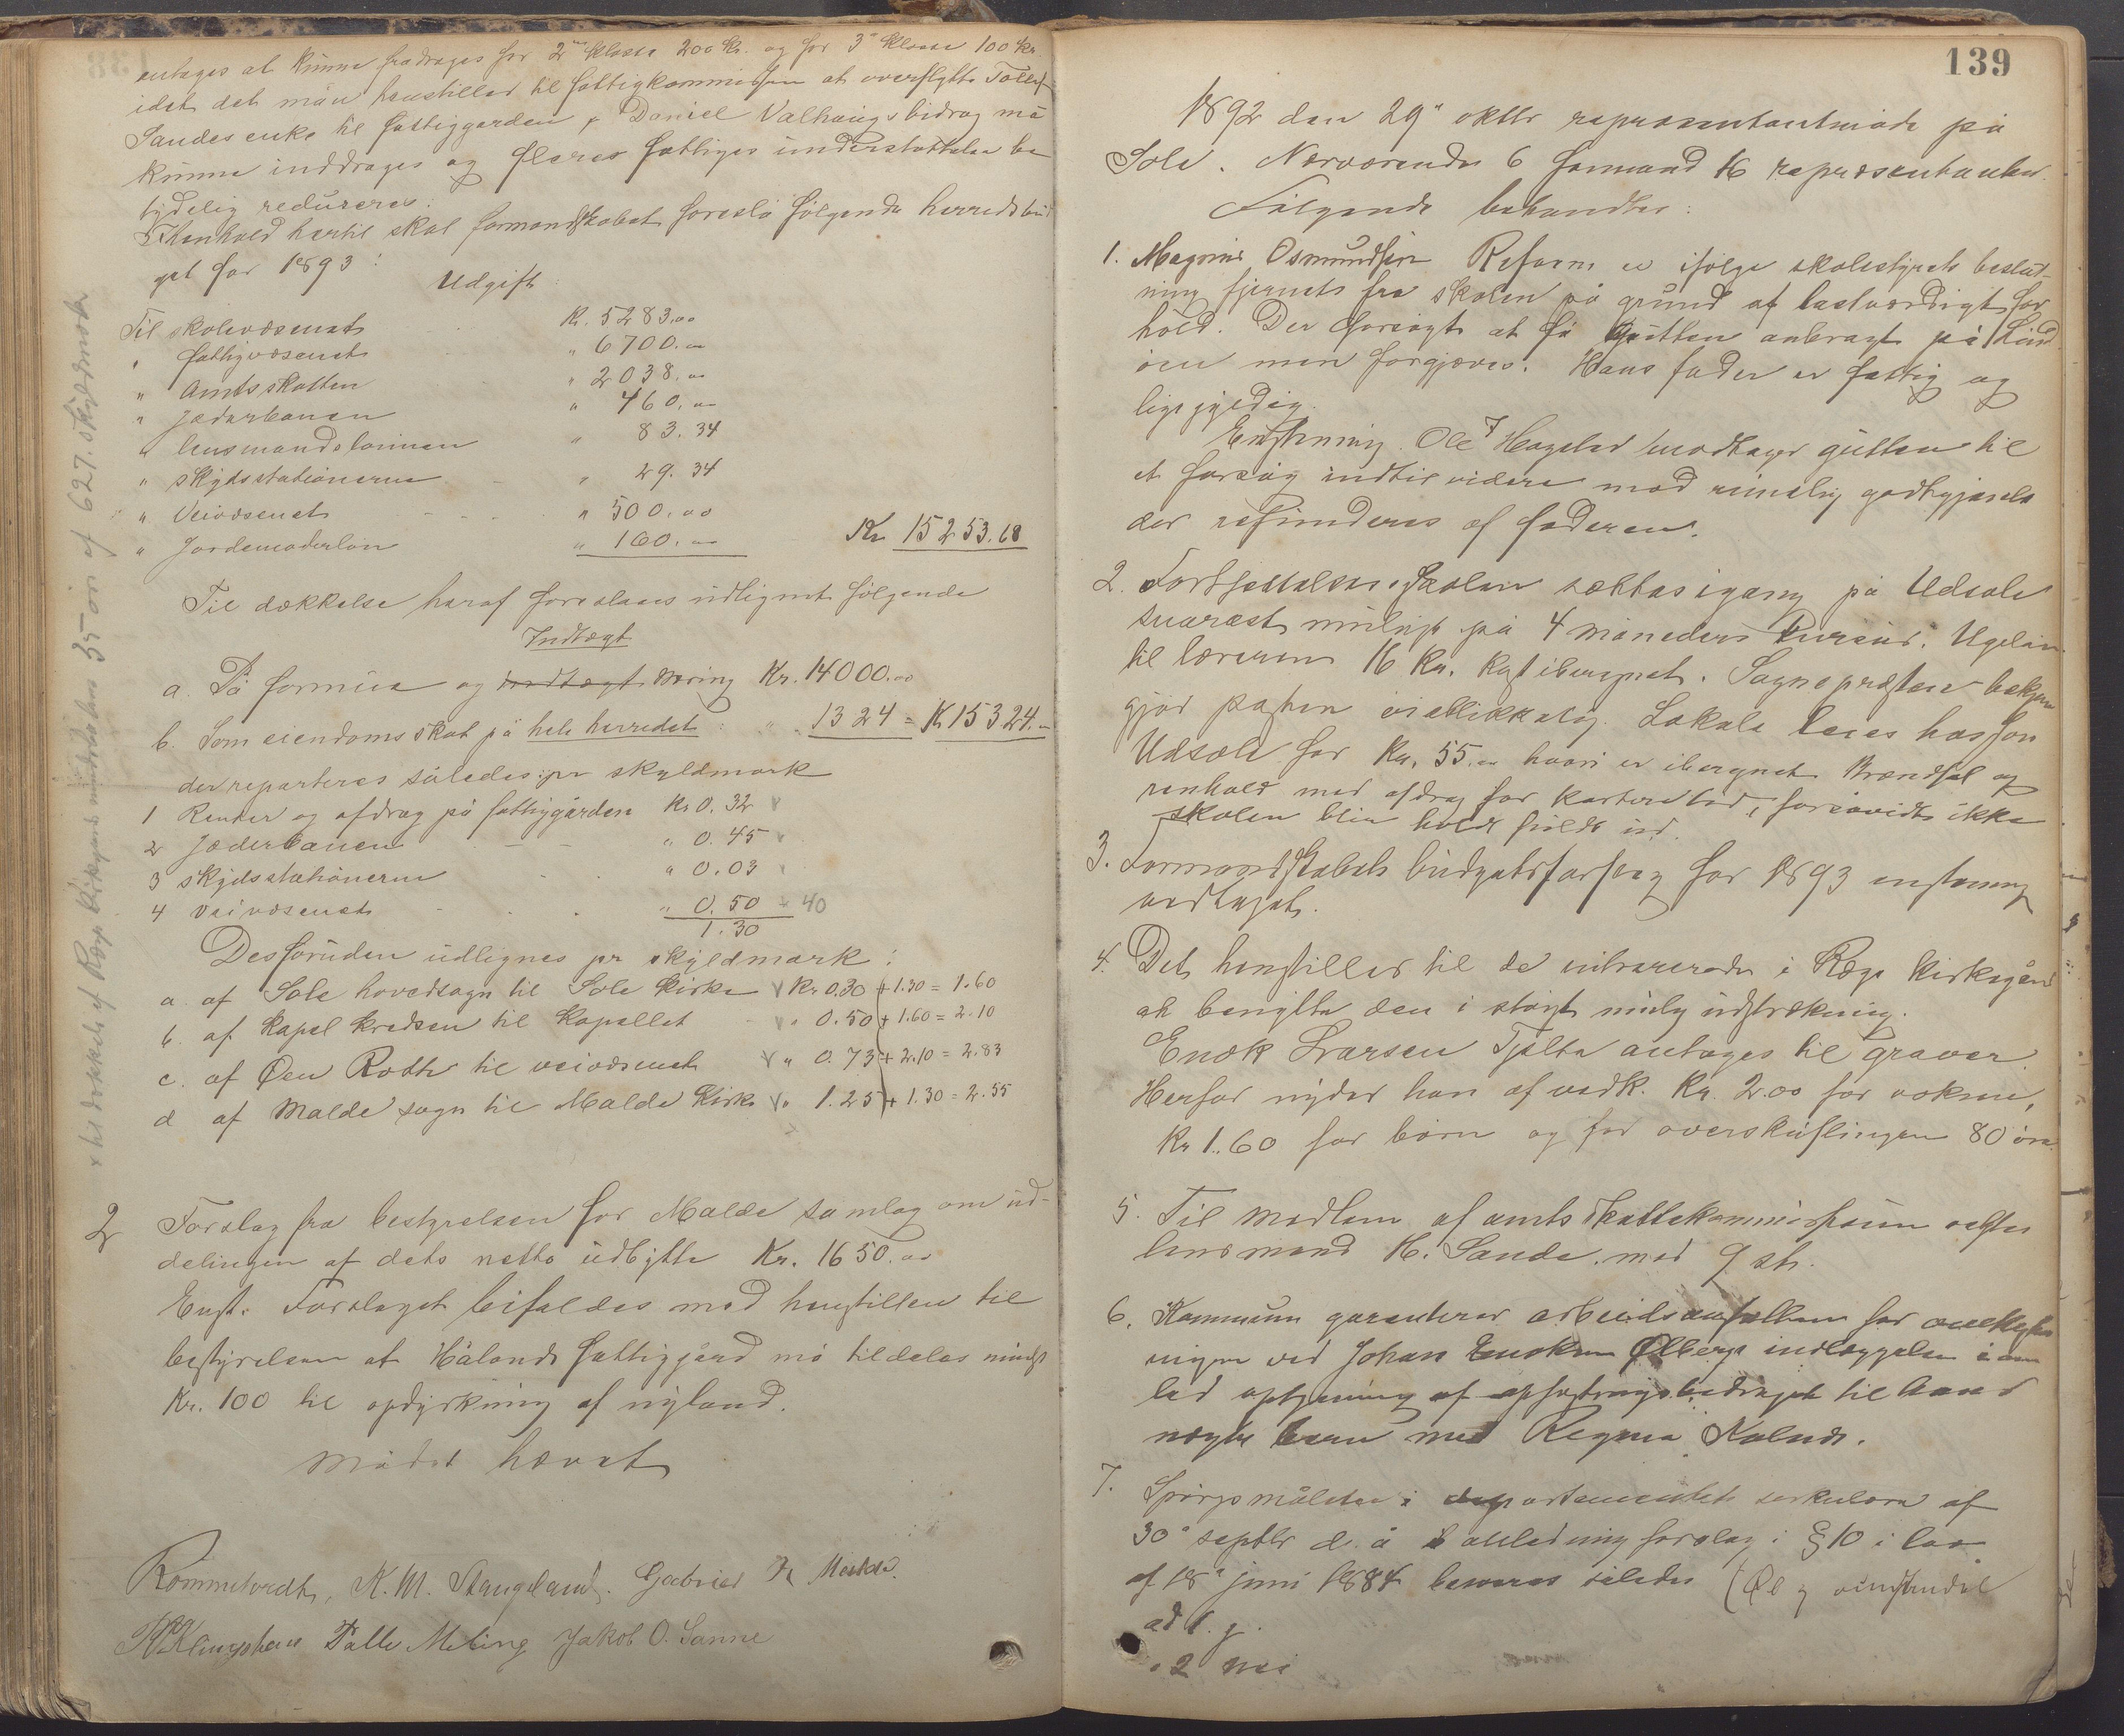 antages at kunne fradrages for 2den klasse 200 kr. og for 3e klasse 100 kr.
idet det man henstilles til fattigkommissionen at overflytte
Sandes enke til fattiggarden, Daniel Valhaugs bidrag må
kunne inddrages og fleres fattiges understøttelse be
tydelig reduceres.
I Henhold hertil skal formandskabet foreslå følgende herredsbud
get for 1893:
Udgift
Til skolevæsenet Kr. 5283.00
" fattigvæsenet " 6700.00
" Amtsskatten " 2038.00
" Jæderbanen " 460.00
" lensmandslønnen " 83.34
" Skydsstationerne " 29.34
" Veivæsenet " 500.00
" Jordemoderløn " 160.00 Kr 15253.68
Til dækkelse heraf foreslaaes udlignet følgende
Indtægt
a. På formue og indtægt næring Kr. 14000.00
b. Som eiendomsskat på hele herredet: " 1324 = K 15324.00
der reparteres således: pr skyldmark
1 Renter og afdrag på fattiggården Kr 0.32
2 Jæderbanen " 0.45
3 Skydsstationerne " 0.03
4 Veivæsenet " 0.50 40
1.30
Desforuden udlignes pr skyldmark:
a. af Sole hovedsogn til Sole kirke Kr 0.30 + 1.30 = 1.60
b. af Kapel kredsen til Kapellet " 0.50 + 1.60 = 2.10
c. af Øen Rodte til veivæsenet " 0.73 + 2.10 = 2.83
d af Malde sogn til Malde Kirke " 1.25 + 1.30 = 2.55
2 Forslag fra bestyrelsen for Malde samlag om ud-
delingen af dets netto udbytte Kr. 1650.00
Enst. Forslaget bifaldes med henstillen til
bestyrelsen at Hålands fattiggård må tildeles mindst
Kr. 100 til opdyrkning af nyland.
Mødet hævet
Rommetvedt, K. M. Stangeland. Gabriel
Palle Meling Jakob O. Sømme
x til dækkelse af Ræge Kirkegård 35 øre af 627. skyldmark
139
1892 den 29" oktbr repræsentantmøde på
Sole. Nærværende 6 formænd 16 repræsentanter.
Følgende behandles:
1. Magnus Osmundsen Refsnes er ifølge skolestyrets beslut-
ning fjernets fra skolen på grund af lastværdigt for
hold. Der forsøgt at få gutten anbragt på Lind
øen men forgjæves. Hans fader er fattig og
ligegyldig.
Enstemmig. Ole T Hogstad modtager gutten til
et forsøg indtil videre mod rimelig godtgjørelse
der refunderes af faderen.
2. Fortsættelsesskolen sættes igang på Udsole
snarest muligt på 4 måneders kursus. Ugeløn
til læreren 16 Kr. kost iberegnet. Sognepræsten bekjendt
gjør posten øieblikkelig. Lokale leies hos Jon
Udsole for Kr. 55.00 hvori er iberegnet Brændsel og
renhold med afdrag for kortere tid, forsåvidt ikke
skolen blir holdt fuldt ud.
3. Formandskabets budgetsforslag for 1893 enstemmig
vedtaget.
4. Det henstilles til de interesserede i Ræge Kirkegård
at benytte den i størst mulig udstrækning.
Enok Larsen Tjelta antages til graver.
Herfor nyder han af vedk. Kr. 2.00 for voksne,
Kr 1.60 for børn og for overskuflingen 80 øre.
5. Til medlem af amtsskattekommissionen valgtes
lensmand H. Sande. med 9 st.
6. Kommunen garanterer arbeidsanstalten for omkostn
ingen ved Johan Enoksen Ølbergs indlæggelse i an
led optjening af opfostringsbidraget til hans
uægte barn med Regine Kolnes.
7. Spørgsmålene i departementets cirkulære af
30" septbr d. å i anledning forslag i § 10 i lov
af 18" juni 1884 besvares således (Øl og vinhandel
ad 1. j.
" 2 nei